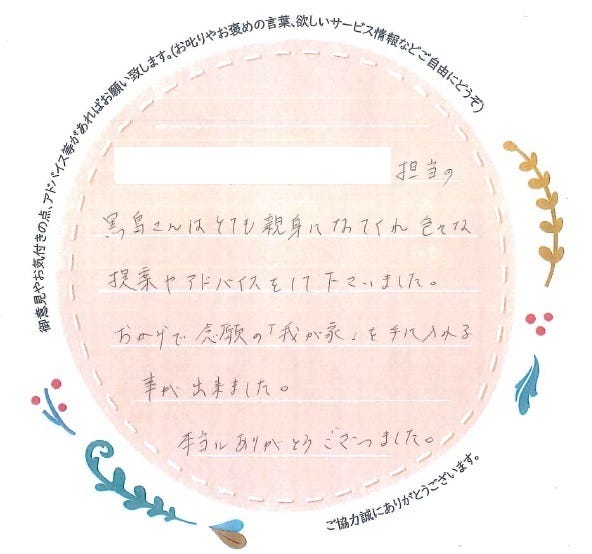 御意見やお気付きの点、アドバイス等があればお願い致します。(お叱りやお褒めの言葉、欲しいサービス情報などご自由にどうぞ)
担当の
黒島さんはとても親身になってくれ 色々な
提案やアドバイスをして下さいました。
おかげで 念願の「我が家」を手に入れる
事が出来ました。
本当にありがとうございました。
ご協力誠にありがとうございます。